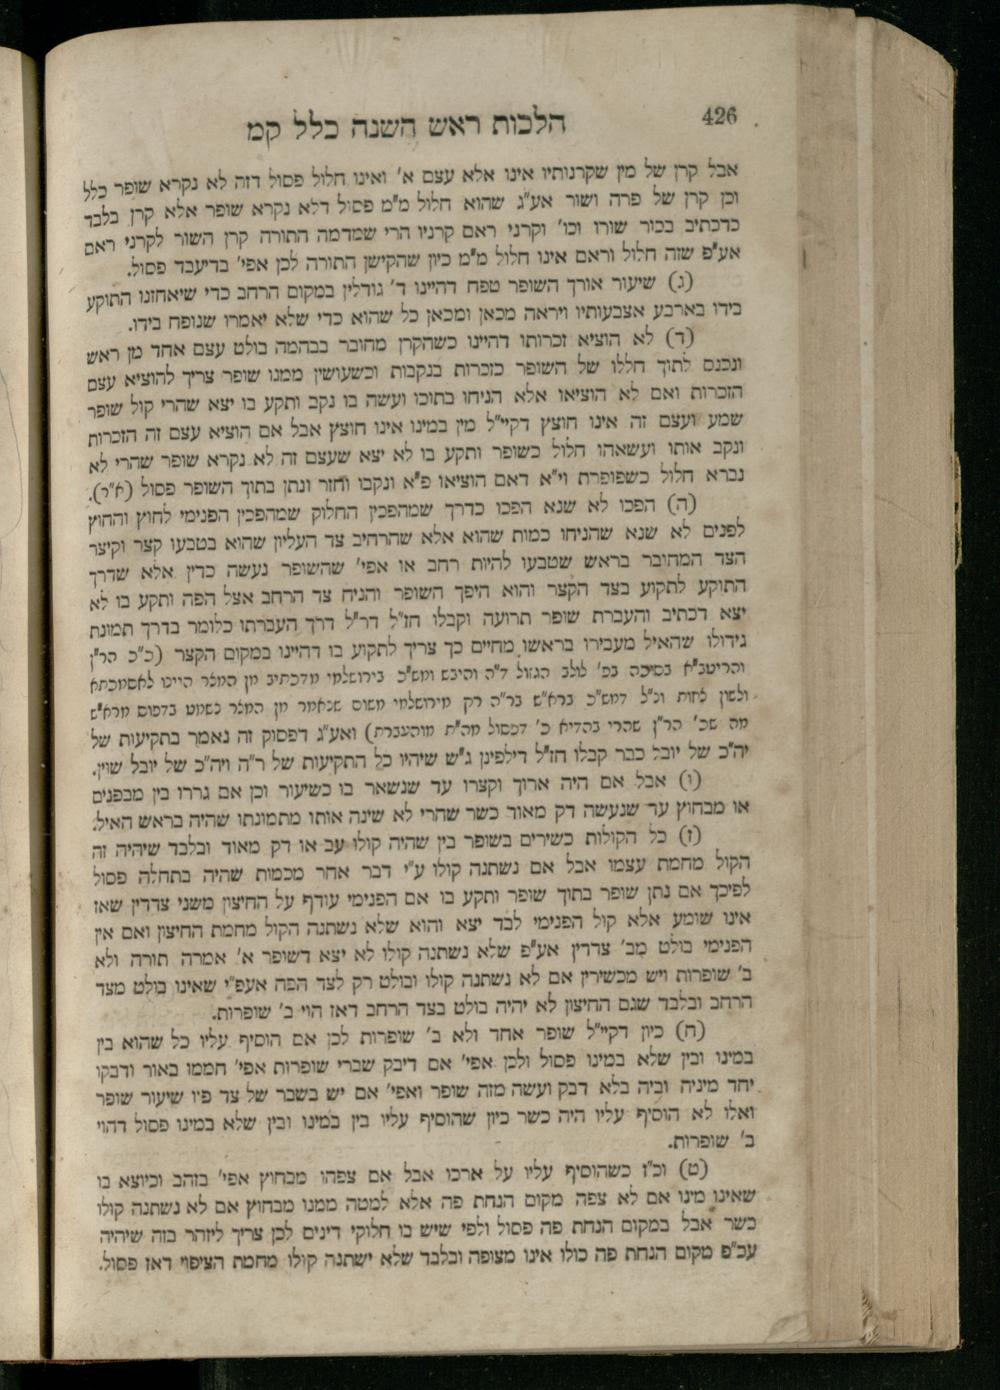 426
הלכות ראש השנה כלל קמ
אבל קרן של מין שקרנותיו אינו אלא עצם א' ואינו חלול פסול דזה לא נקרא שופר כלל
וכן קרן של פרה ושור אע"ג שהוא חלול מ"מ פסול דלא נקרא שופר אלא קרן בלבד
כדכתיב בכור שורו וכו' וקרני ראם קרניו הרי שמדמה התורה קרן השור לקרני ראם
אע"פ שזה חלול וראם אינו חלול מ"מ כיון שהקישן התורה לכן אפי' בדיעבד פסול.
(ג) שיעור אורך השופר טפח דהיינו ד' גודלין במקום הרחב כדי שיאחזנו התוקע
בידו בארבע אצבעותיו ויראה מכאן ומכאן כל שהוא כדי שלא יאמרו שנופח בידו.
(ד) לא הוציא זכרותו דהיינו כשהקרן מחובר בבהמה בולט עצם אחד מן ראש
ונכנס לתוך חללו של השופר כזכרות בנקבות וכשעושין ממנו שופר צריך להוציא עצם
הזכרות ואם לא הוציאו אלא הניחו בתוכו ועשה בו נקב ותקע בו יצא שהרי קול שופר
שמע ועצם זה אינו חוצץ דקיי"ל מין במינו אינו חוצץ אבל אם הוציא עצם זה הזכרות
ונקב אותו ועשאהו חלול כשופר ותקע בו לא יצא שעצם זה לא נקרא שופר שהרי לא
נברא חלול כשפופרת וי"א דאם הוציאו פ"א ונקבו וחזר ונתן בתוך השופר פסול (א"ר).
(ה) הפכו לא שנא הפכו כדרך שמהפכין החלוק שמהפכין הפנימי לחוץ והחוץ
לפנים לא שנא שהניחו כמות שהוא אלא שהרחיב צד העליון שהוא בטבעו קצר וקיצר
הצד המחובר בראש שטבעו להיות רחב או אפי' שהשופר נעשה כדין אלא שדרך
התוקע לתקוע בצד הקצר והוא היפך השופר והניח צד הרחב אצל הפה ותקע בו לא
יצא דכתיב והעברת שופר תרועה וקבלו חז"ל דר"ל דרך העברתו כלומר בדרך תמונת
גידולו שהאיל מעבירו בראשו מחיים כך צריך לתקוע בו דהיינו במקום הקצר (כ"כ הר"ן
והריטב"א בסיכה בפ' לולב הגזול ד"ה והיבש ומש"כ בירושלמי מדכתיב מן המצר היינו לאסמכתא
ולשון לחות וכ"ל דמש"כ ברא"ש בר"ה רק מירושלמי משום שנאמר מן המצר נשמט בדפוס מרא"ש
מה שכ' הר"ן שהרי בהדיא כ' דפסול מה"ת מוהעברת) ואע"ג דפסוק זה נאמר בתקיעות של
יה"כ של יובל כבר קבלו חז"ל דילפינן ג"ש שיהיו כל התקיעות של ר"ה ויה"כ של יובל שוין.
(ו) אבל אם היה ארוך וקצרו עד שנשאר בו כשיעור וכן אם גררו בין מבפנים
או מבחוץ עד שנעשה דק מאוד כשר שהרי לא שינה אותו מתמונתו שהיה בראש האיל.
(ז) כל הקולות כשירים בשופר בין שהיה קולו עב או דק מאוד ובלבד שיהיה זה
הקול מחמת עצמו אבל אם נשתנה קולו ע"י דבר אחר מכמות שהיה בתחלה פסול
לפיכך אם נתן שופר בתוך שופר ותקע בו אם הפנימי עודף על החיצון משני צדדין שאז
אינו שומע אלא קול הפנימי לבד יצא והוא שלא נשתנה הקול מחמת החיצון ואם אין
הפנימי בולט מב' צדדין אע"פ שלא נשתנה קולו לא יצא דשופר א' אמרה תורה ולא
ב' שופרות ויש מכשירין אם לא נשתנה קולו ובולט רק לצד הפה אעפ"י שאינו בולט מצד
הרחב ובלבד שגם החיצון לא יהיה בולט בצד הרחב דאז הוי ב' שופרות.
(ח) כיון דקיי"ל שופר אחד ולא ב' שופרות לכן אם הוסיף עליו כל שהוא בין
במינו ובין שלא במינו פסול ולכן אפי' אם דיבק שברי שופרות אפי' חממו באור ודבקו
יחד מיניה וביה בלא דבק ועשה מזה שופר ואפי' אם יש בשבר של צד פיו שיעור שופר
ואלו לא הוסיף עליו היה כשר כיון שהוסיף עליו בין במינו ובין שלא במינו פסול דהוי
ב' שופרות.
(ט) וכ"ז כשהוסיף עליו על ארכו אבל אם צפהו מבחוץ אפי' בזהב וכיוצא בו
שאינו מינו אם לא צפה מקום הנחת פה אלא למטה ממנו מבחוץ אם לא נשתנה קולו
כשר אבל במקום הנחת פה פסול ולפי שיש בו חלוקי דינים לכן צריך ליזהר בזה שיהיה
עכ"פ מקום הנחת פה כולו אינו מצופה ובלבד שלא ישתנה קולו מחמת הציפוי דאז פסול.